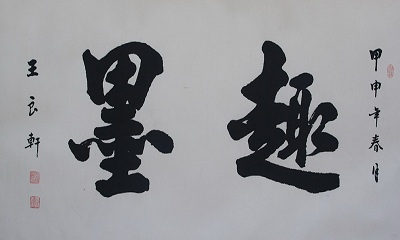 甲申年春月
趣墨
王良軒